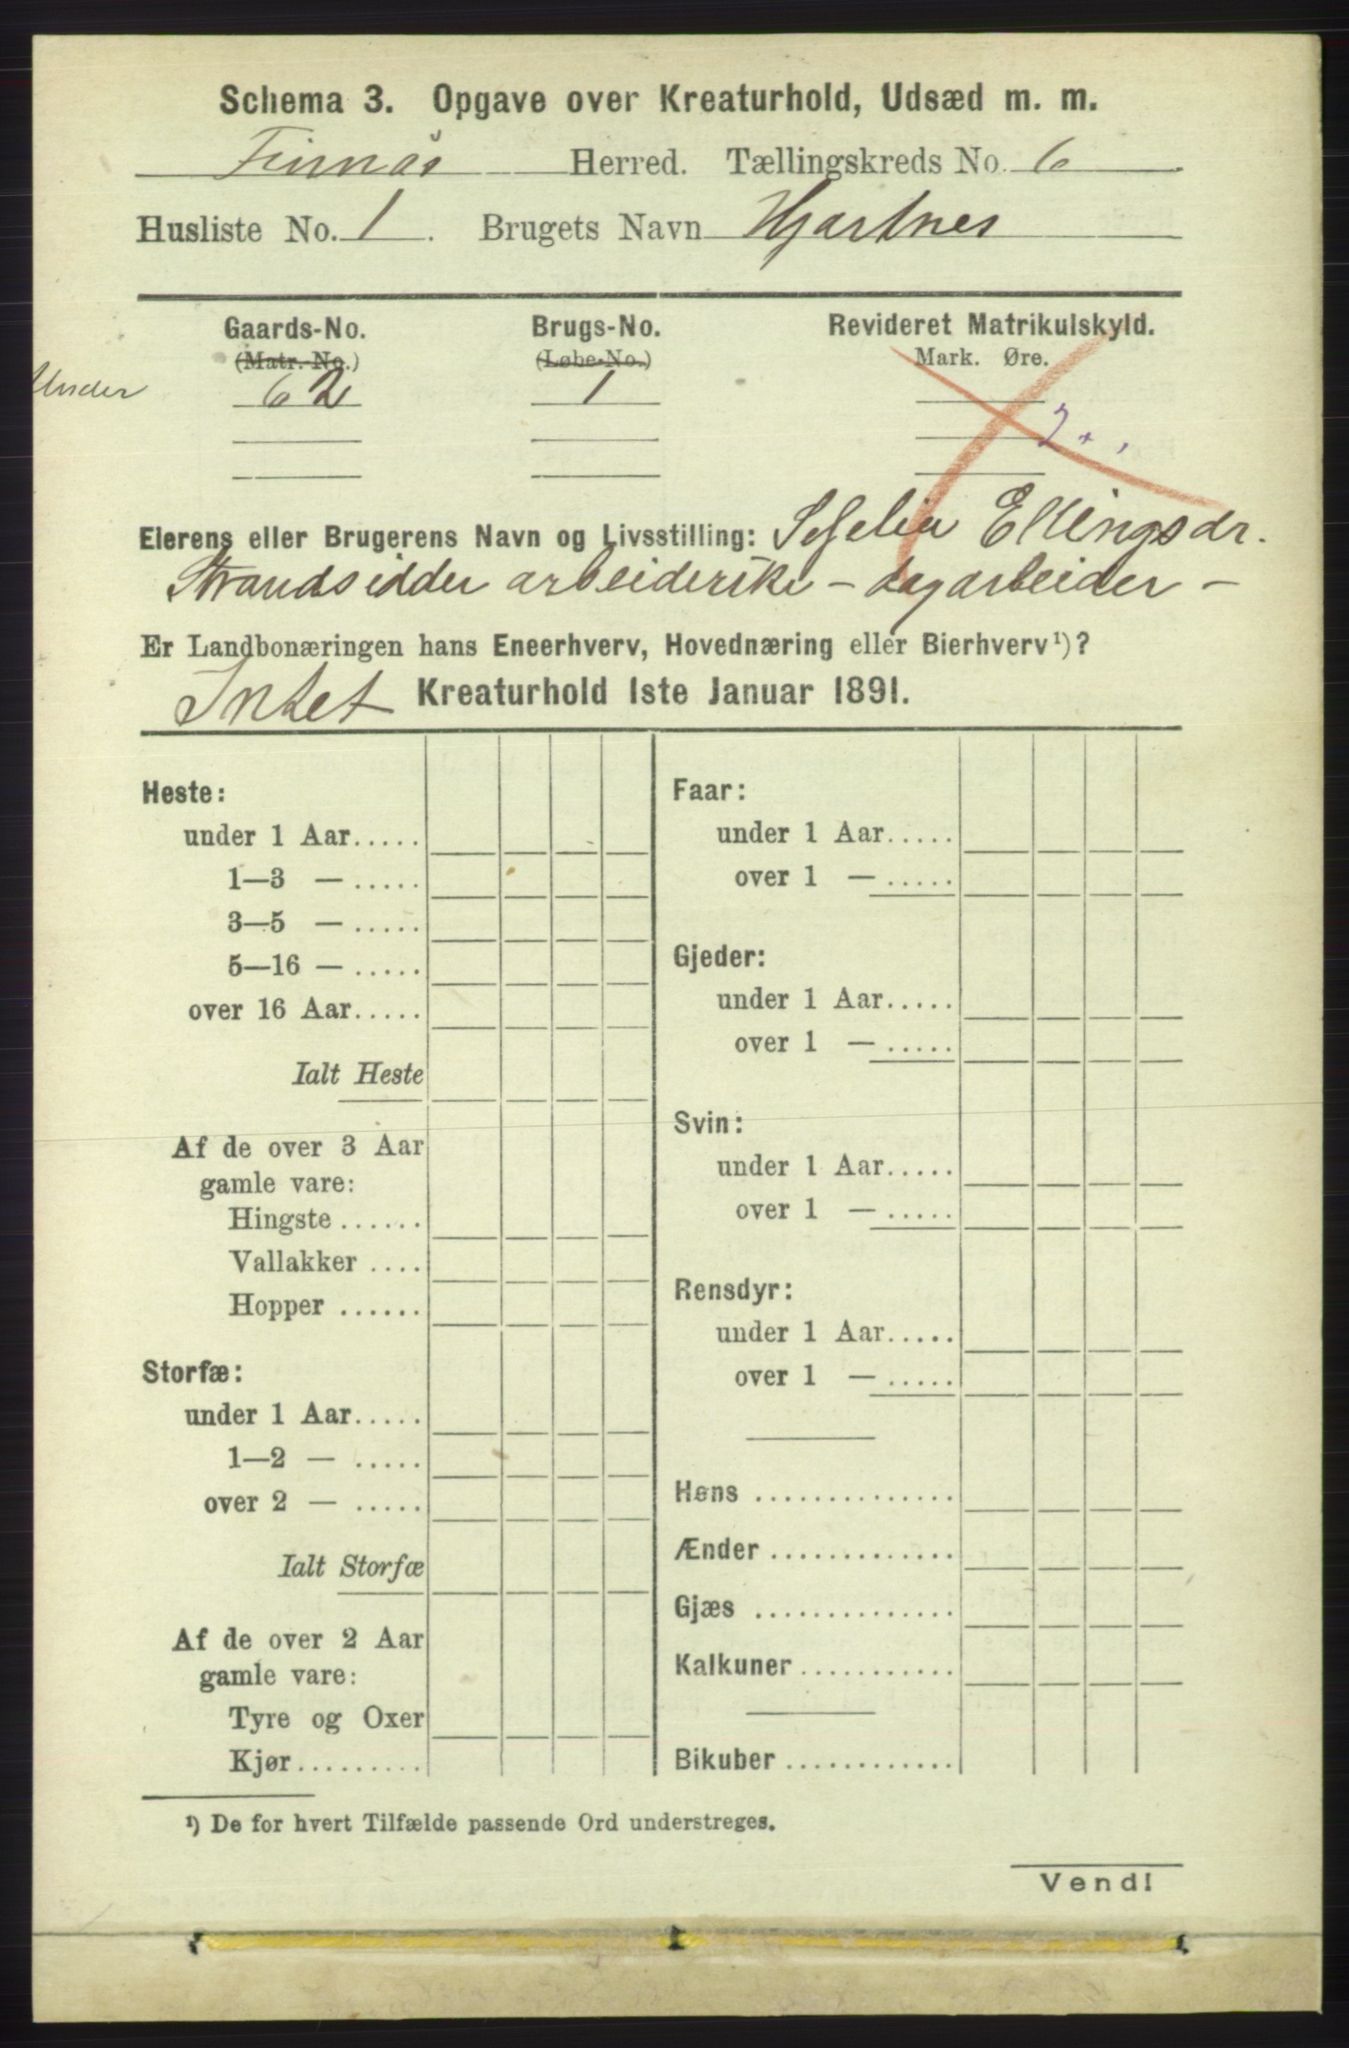 Schema 3. Opgave over Kreaturhold, Udsæd m. m.
Finnås Herred. Tællingskreds No. 6
Husliste No. 1. Brugets Navn Hjartnes
Gaards-No. Brugs-No. Revideret Matrikulskyld.
(Matr.-No.) (Løbe-No.) Mark. Øre.
Under 62 1
Eierens eller Brugerens Navn og Livsstilling: Ellingsdr.
Strandsidder arbeiderske - dagarbeider -
Er Landbonæringen hans Eneerhverv, Hovednæring eller Bierhverv¹)?
Intet Kreaturhold 1ste Januar 1891.
Heste:
under 1 Aar.....
1—3 — .....
3—5 — .....
5—16 — .....
over 16 Aar.....
Ialt Heste
Af de over 3 Aar
gamle vare:
Hingste ......
Vallakker ....
Hopper ......
Storfæ:
under 1 Aar.....
1—2 — .....
over 2 — .....
Ialt Storfæ
Af de over 2 Aar
gamle vare:
Tyre og Oxer
Kjør.........
Faar:
under 1 Aar.....
over 1 — .....
Gjeder:
under 1 Aar.....
over 1 — .....
Svin:
under 1 Aar.....
over 1 — .....
Rensdyr:
under 1 Aar.....
over 1 — .....
Høns ..............
Ænder .............
Gjæs ..............
Kalkuner...........
Bikuber ............
¹) De for hvert Tilfælde passende Ord understreges.
Vend!